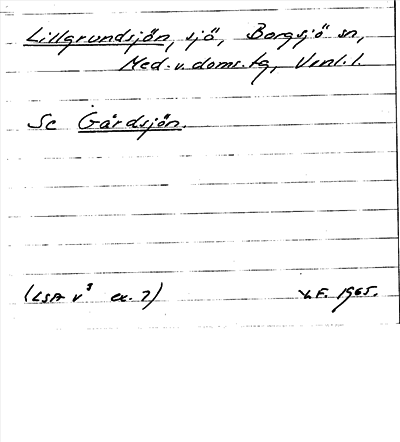 Lillgrundsjön, sjö, Borgsjö sn,
Med. v. doms. tg,
Se Gårdsjön.
(LSA V³ ex. 7) 1965.